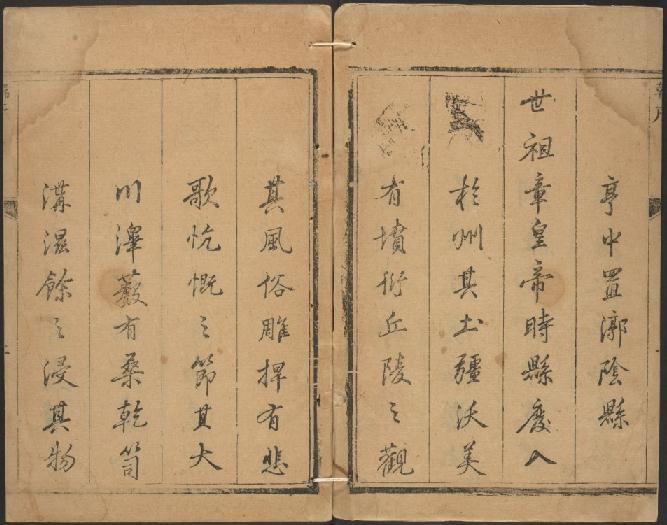 亭中置漷陰縣
世祖章皇帝時縣廢入
於州其土疆沃美
有墳衍丘陵之觀
其風俗雕捍有悲
歌忼慨之節其大
川澤藪有桑乾笥
溝滋餘之浸其物